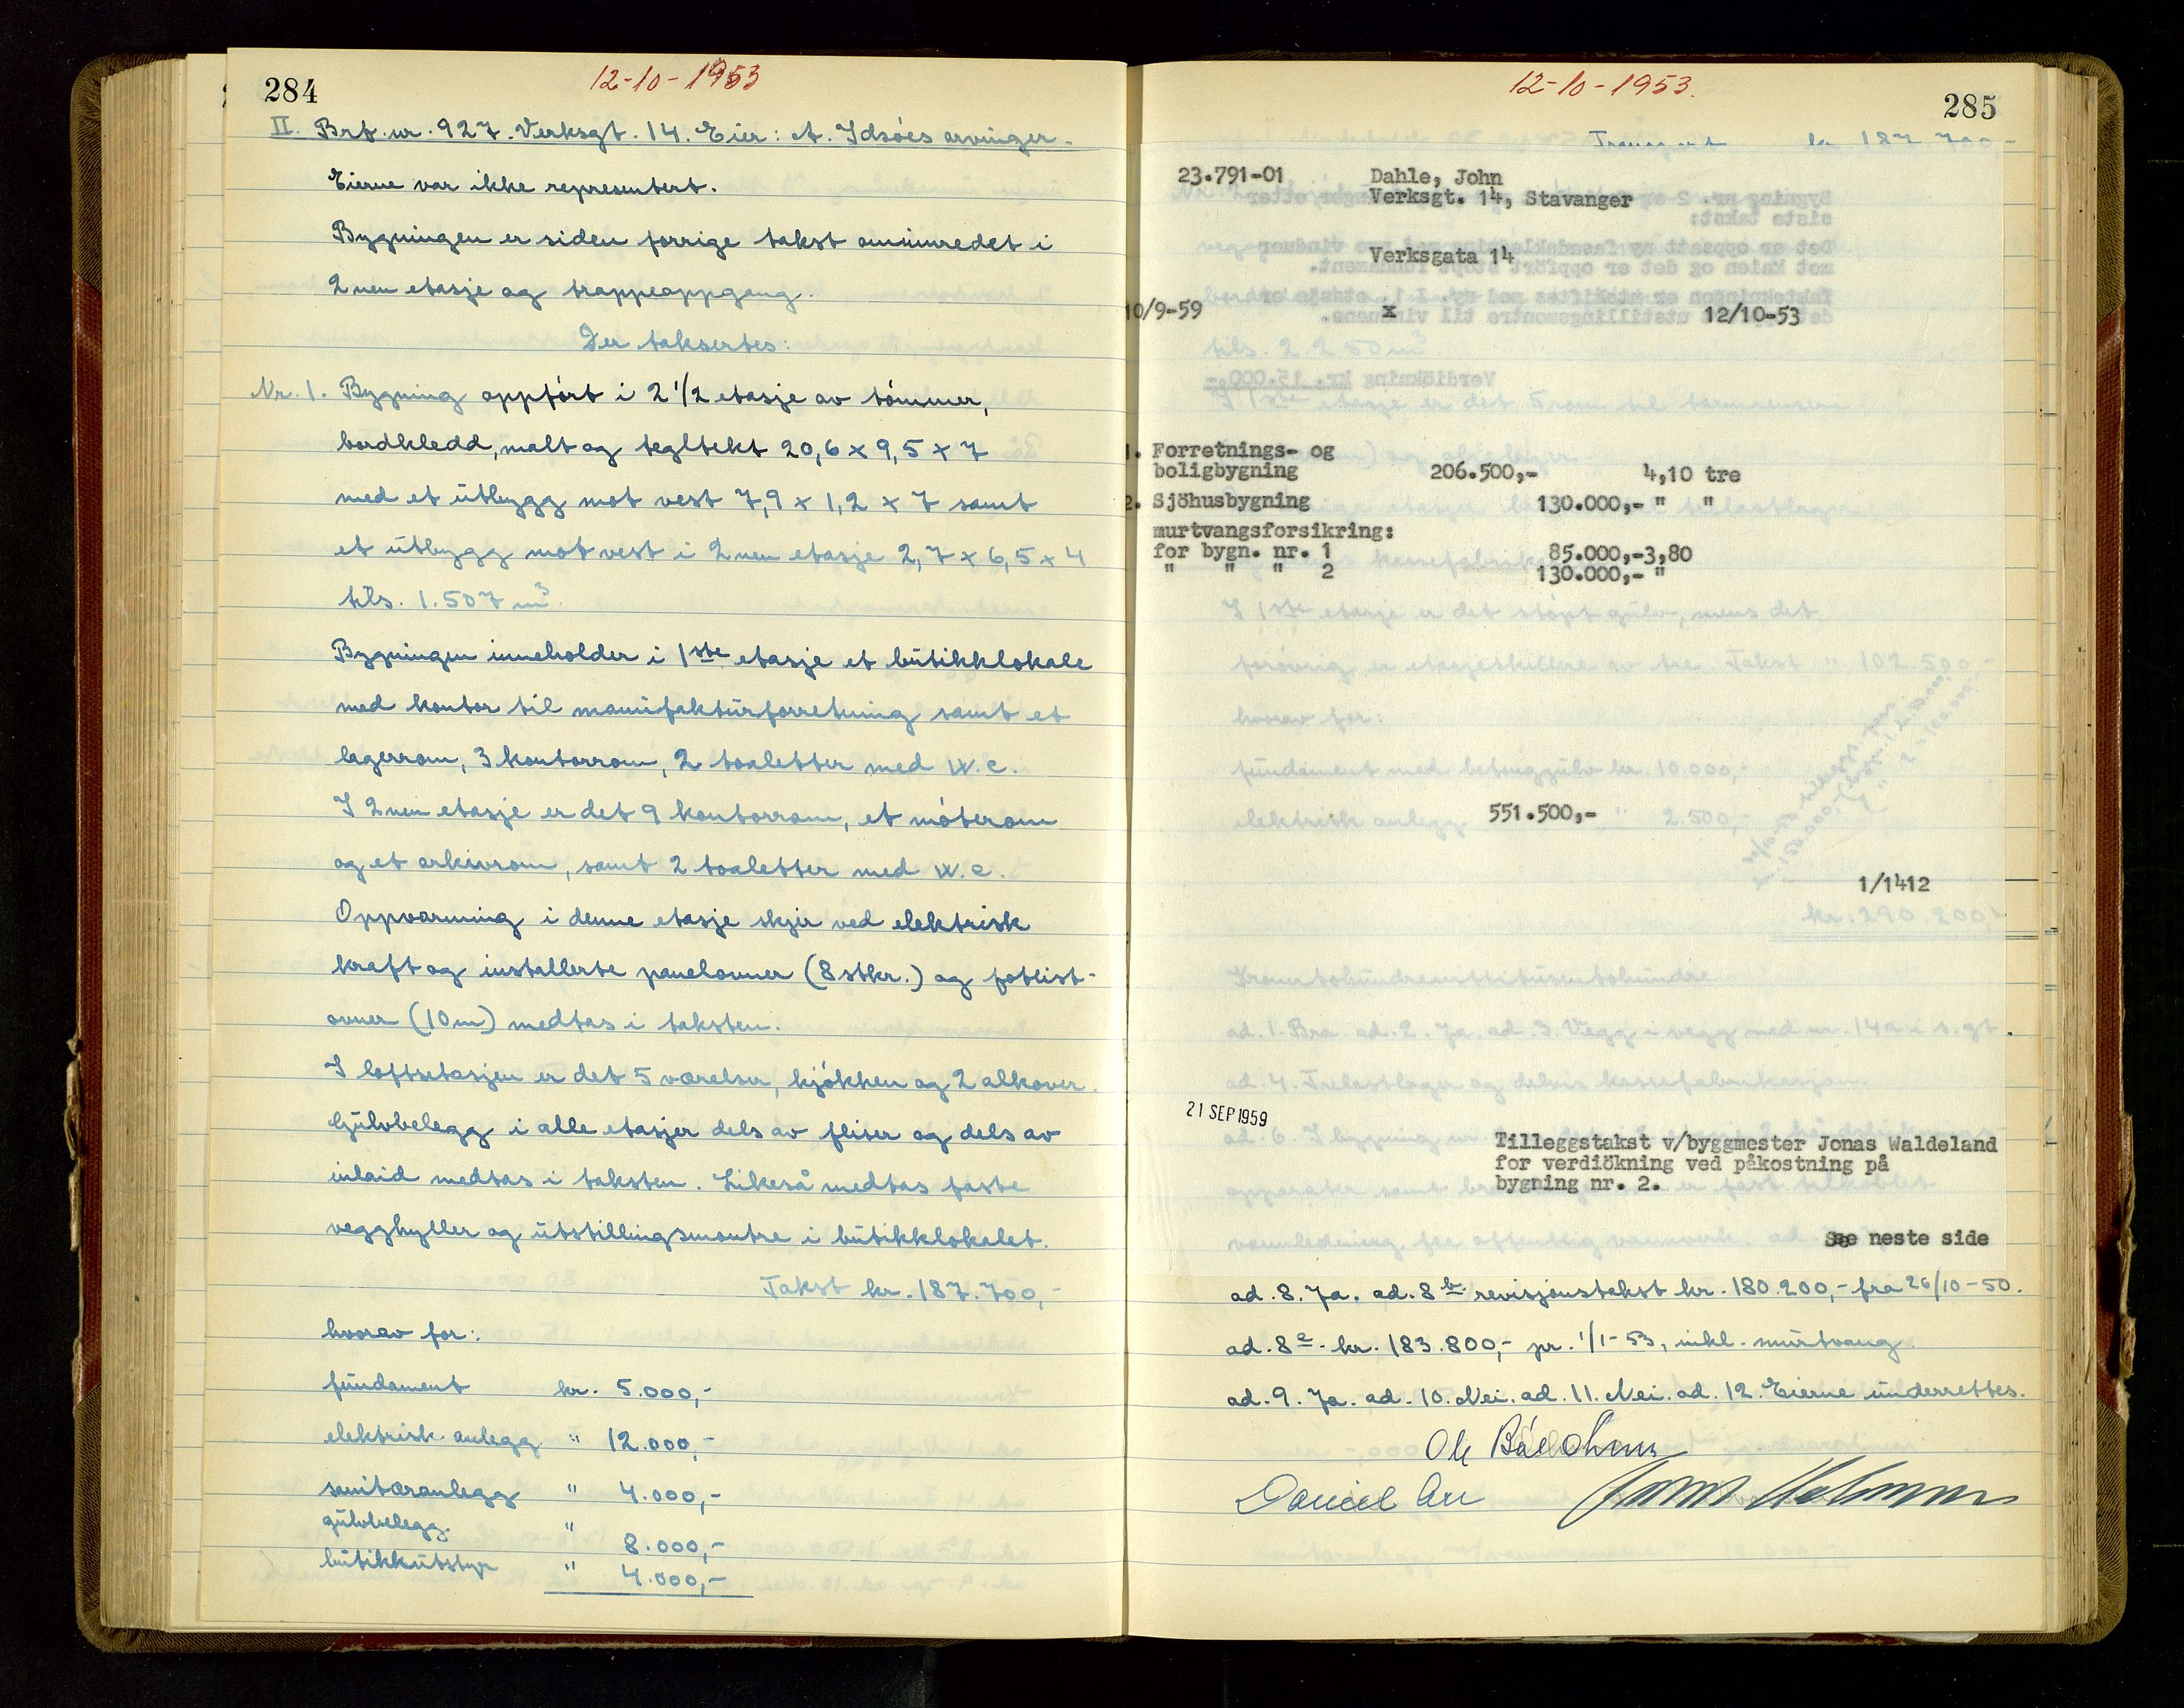 284
12-10-1953
II. Brt. nr. 927. Verksgt. 14. Eier: A. Idsöes arvinger.
Eierne var ikke representert.
Bygningen er siden forrige takst ominnredet i
2nen etasje og trappeoppgang.
Der taksertes:
Nr. 1. Bygning oppfört i 2 1/2 etasje av tömmer,
bordkledd, malt og tegltekt 20,6 x 9,5 x 7
med et utbygg mot vest 7,9 x 1,2 x 7 samt
et utbygg mot vest i 2nen etasje 2,7 x 6,5 x 4
tils. 1.507 m³.
Bygningen inneholder i 1ste etasje et butikklokale
med kontor til manufakturforretning samt et
lagerrom, 3 kontorrom, 2 toaletter med w.c.
I 2nen etasje er det 9 kontorrom, et möterom
og et arkivrom, samt 2 toaletter med w.c.
Oppvarming i denne etasje skjer ved elektrisk
kraft og installerte panelovner (8 stkr.) og fotlist-
ovner (10 m) medtas i taksten.
I loftsetasjen er det 5 værelser, kjökken og 2 alkover.
Gulvbelegg i alle etasjer dels av fliser og dels av
inlaid medtas i taksten. Likeså medtas faste
vegghyller og utstillingsmontre i butikklokalet.
Takst kr. 187.700,-
hvorav for:
fundament kr. 5.000,-
elektrisk anlegg " 12.000,-
sanitæranlegg " 4.000,-
gulvbelegg " 8.000,-
butikkutstyr " 4.000,-
12-10-1953.
285
Transport kr. 187.700,-
23.791-01 Dahle, John
Verksgt. 14, Stavanger
Verksgata 14
10/9-59 x 12/10-53
1. Forretnings- og
boligbygning 206.500,- 4,10 tre
2. Sjöhusbygning 130.000,- " "
murtvangsforsikring:
for bygn. nr. 1 85.000,-3,80
" " " 2 130.000,- "
551.500,-
1/1412
kr. 290.200,-
21 SEP 1959
Tilleggstakst v/byggmester Jonas Waldeland
for verdiökning ved påkostning på
bygning nr. 2.
See neste side
ad. 8. Ja. ad. 8 b. revisjonstakst kr. 180.200,- fra 26/10-50.
ad. 8 c. kr. 183.800,- pr. 1/1-53, inkl. murtvang.
ad. 9. Ja. ad. 10. Nei. ad. 11. Nei. ad. 12. Eierne underrettes.
Daniel